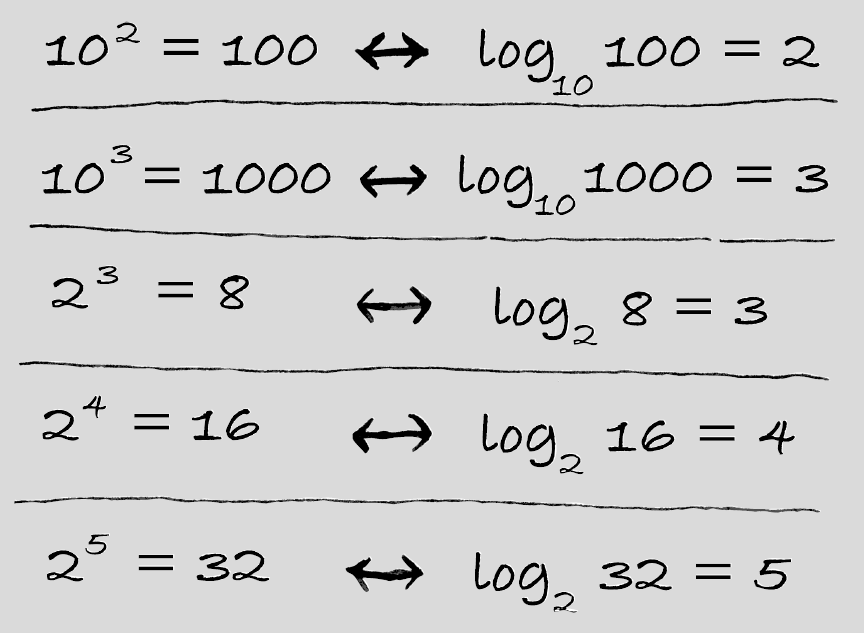 10² = 100 ↔ log₁₀ 100 = 2
10³ = 1000 ↔ log₁₀ 1000 = 3
2³ = 8 ↔ log₂ 8 = 3
2⁴ = 16 ↔ log₂ 16 = 4
2⁵ = 32 ↔ log₂ 32 = 5